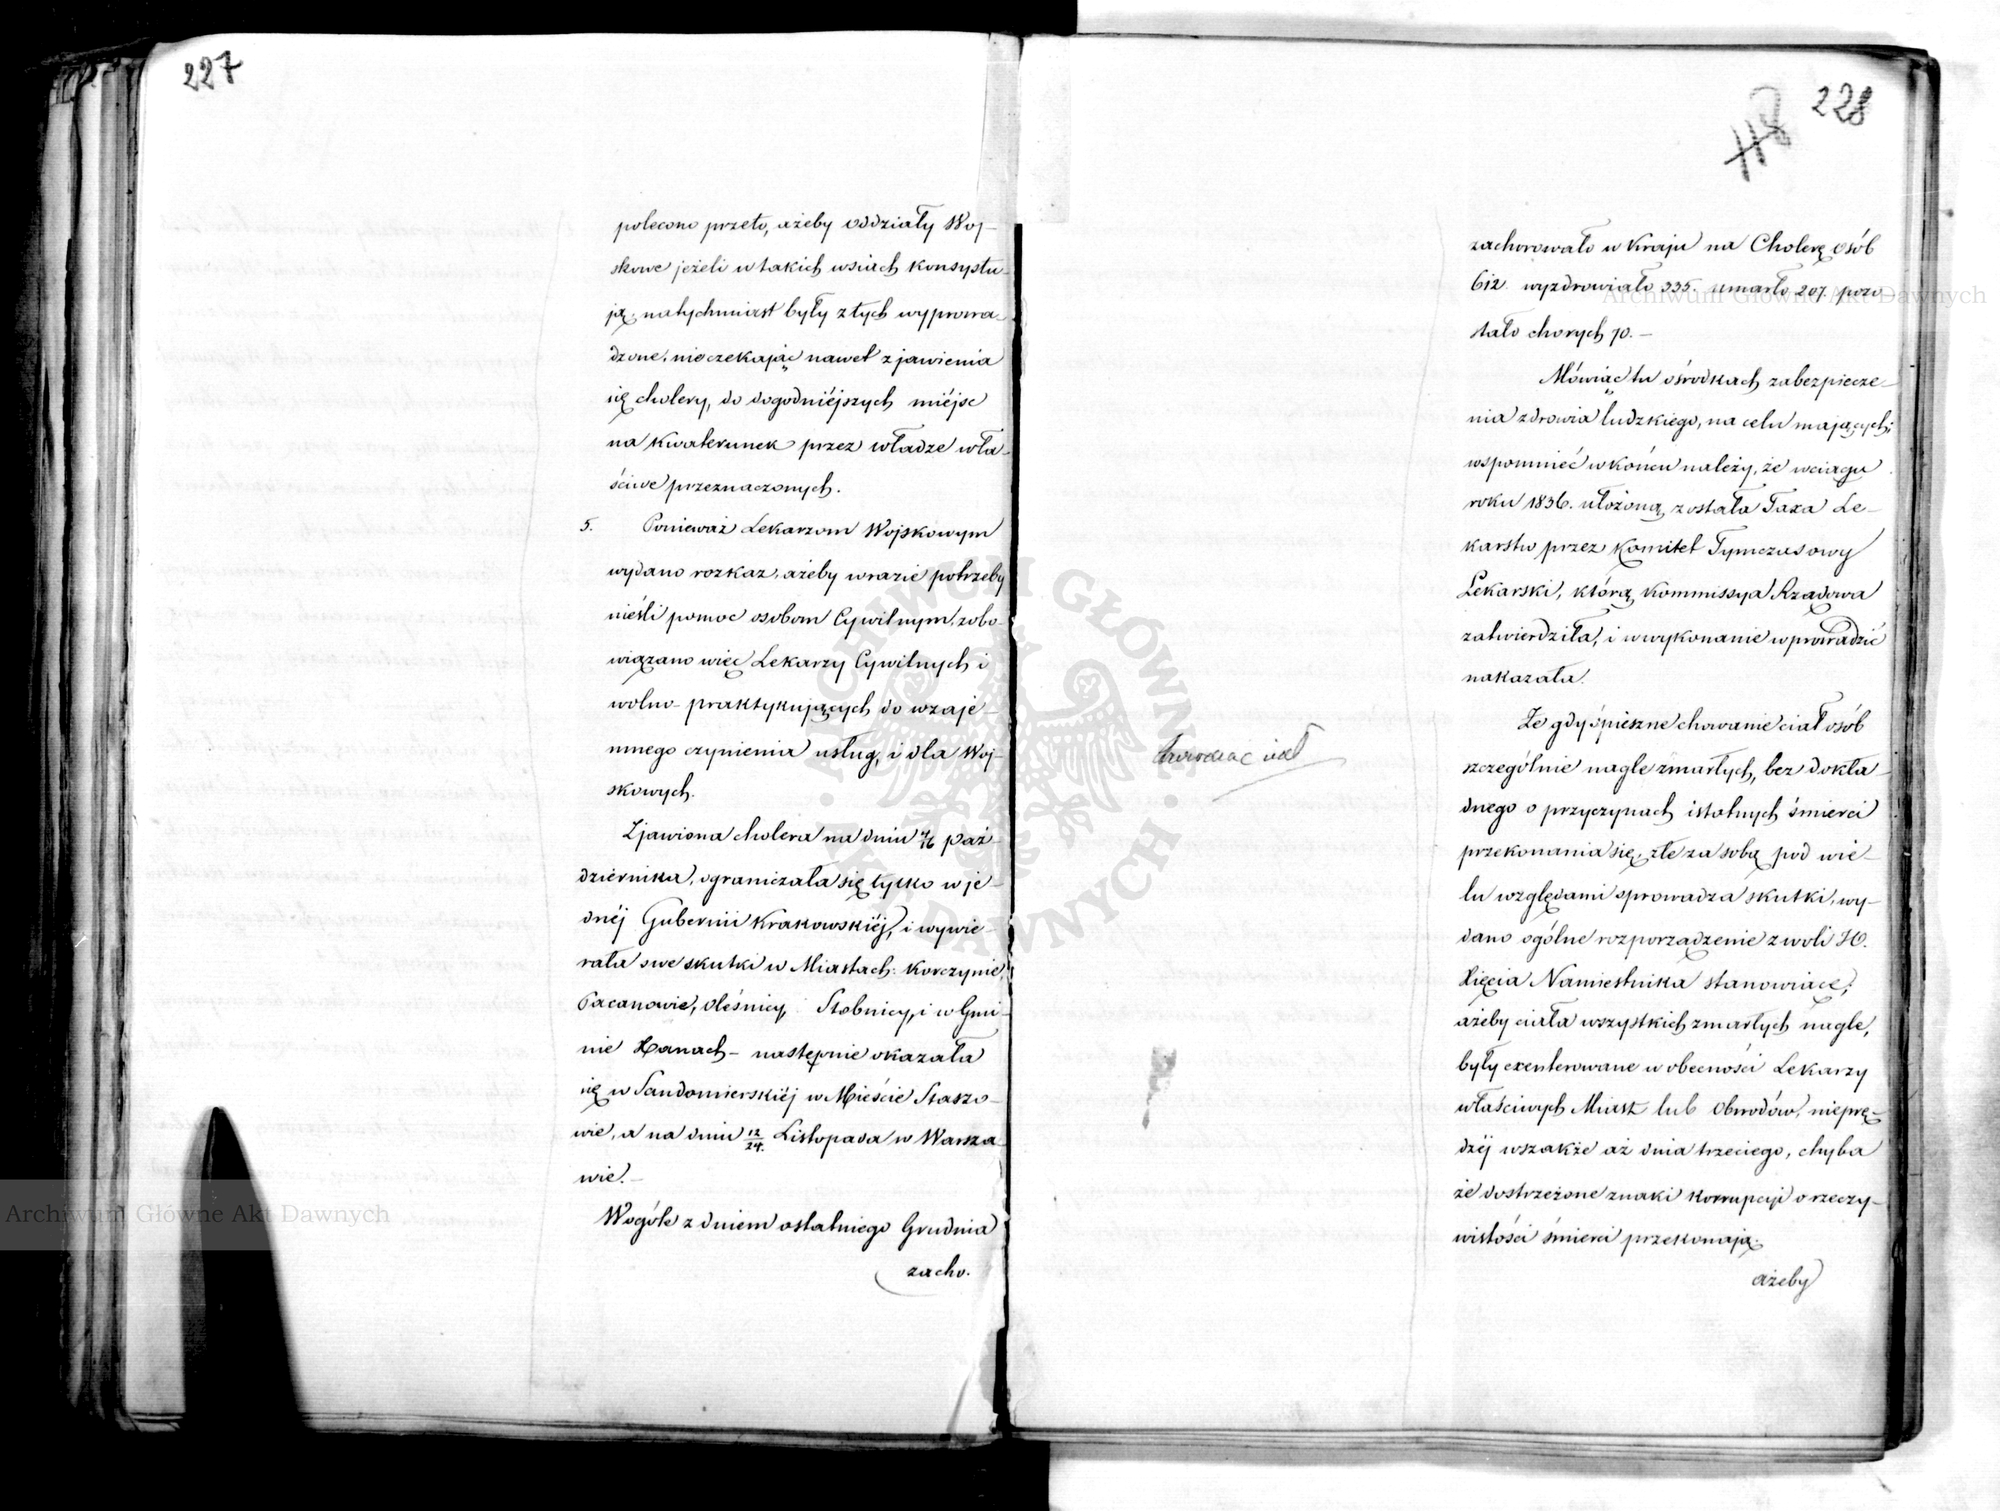 227
polecono przeto, ażeby oddziały Woj-
skowe jeżeli w takich wsiach konsystu-
ją, natychmiast były z tych wyprowa-
dzone, nieczekając nawet zjawienia
się cholery, do dogodniéjszych miéjsc
na kwaterunek przez władze wła-
ściwe przeznaczonych.
5. Ponieważ Lekarzom Wojskowym
wydano rozkaz, ażeby w razie potrzeby
nieśli pomoc osobom Cywilnym, zobo-
wiązano więc Lekarzy Cywilnych i
wolno-praktykujących do wzaje-
mnego czynienia usług, i dla Woj-
skowych.
Zjawiona cholera na dniu 4/16 Paź-
dziernika, ograniczała się tylko w je-
dnéj Gubernii Krakowskiéj, i wywie-
rała swe skutki w Miastach: Korczynie,
Pacanowie, Oleśnicy, Stobnicy, i w Gmi-
nie Hanach - następnie okazała
się w Sandomierskiéj w Mieście Staszo-
wie, a na dniu 12/24. Listopada w Warsza-
wie.-
Wogóle z dniem ostatniego Grudnia
zacho.
228
118
zachorowało w Kraju na Cholerę osób
612. wyzdrowiało 335. umarło 207. pozo
stało chorych 70.-
Mówiąc tu o środkach zabezpiecze-
nia zdrowia ludzkiego, na celu mających;
wspomnieć w końcu należy, że w ciągu
roku 1836. ułożoną została Taxa Le-
karstw przez Komitet Tymczasowy
Lekarski, którą Kommissya Rządowa
zatwierdziła, i w wykonanie wprowadzić
nakazała.
Że gdy śpieszne chowanie ciał osób
szczególnie nagle zmarłych, bez dokła-
dnego o przyczynach istotnych śmierci
przekonania się, złe za sobą pod wie-
lu względami sprowadza skutki, wy-
dano ogólne rozporządzenie z woli JO.
Xięcia Namiestnika stanowiące;
ażeby ciała wszystkich zmarłych nagle,
były exenterowane w obecności Lekarzy
właściwych Miast lub Obwodów, nieprę-
dzéj wszakże aż dnia trzeciego, chyba
że dostrzeżone znaki korrupcji o rzeczy-
wistości śmierci przekonają.
ażeby
Archiwum Główne Akt Dawnych
Archiwum Główne Akt Dawnych
ARCHIWUM GŁÓWNE AKT DAWNYCH